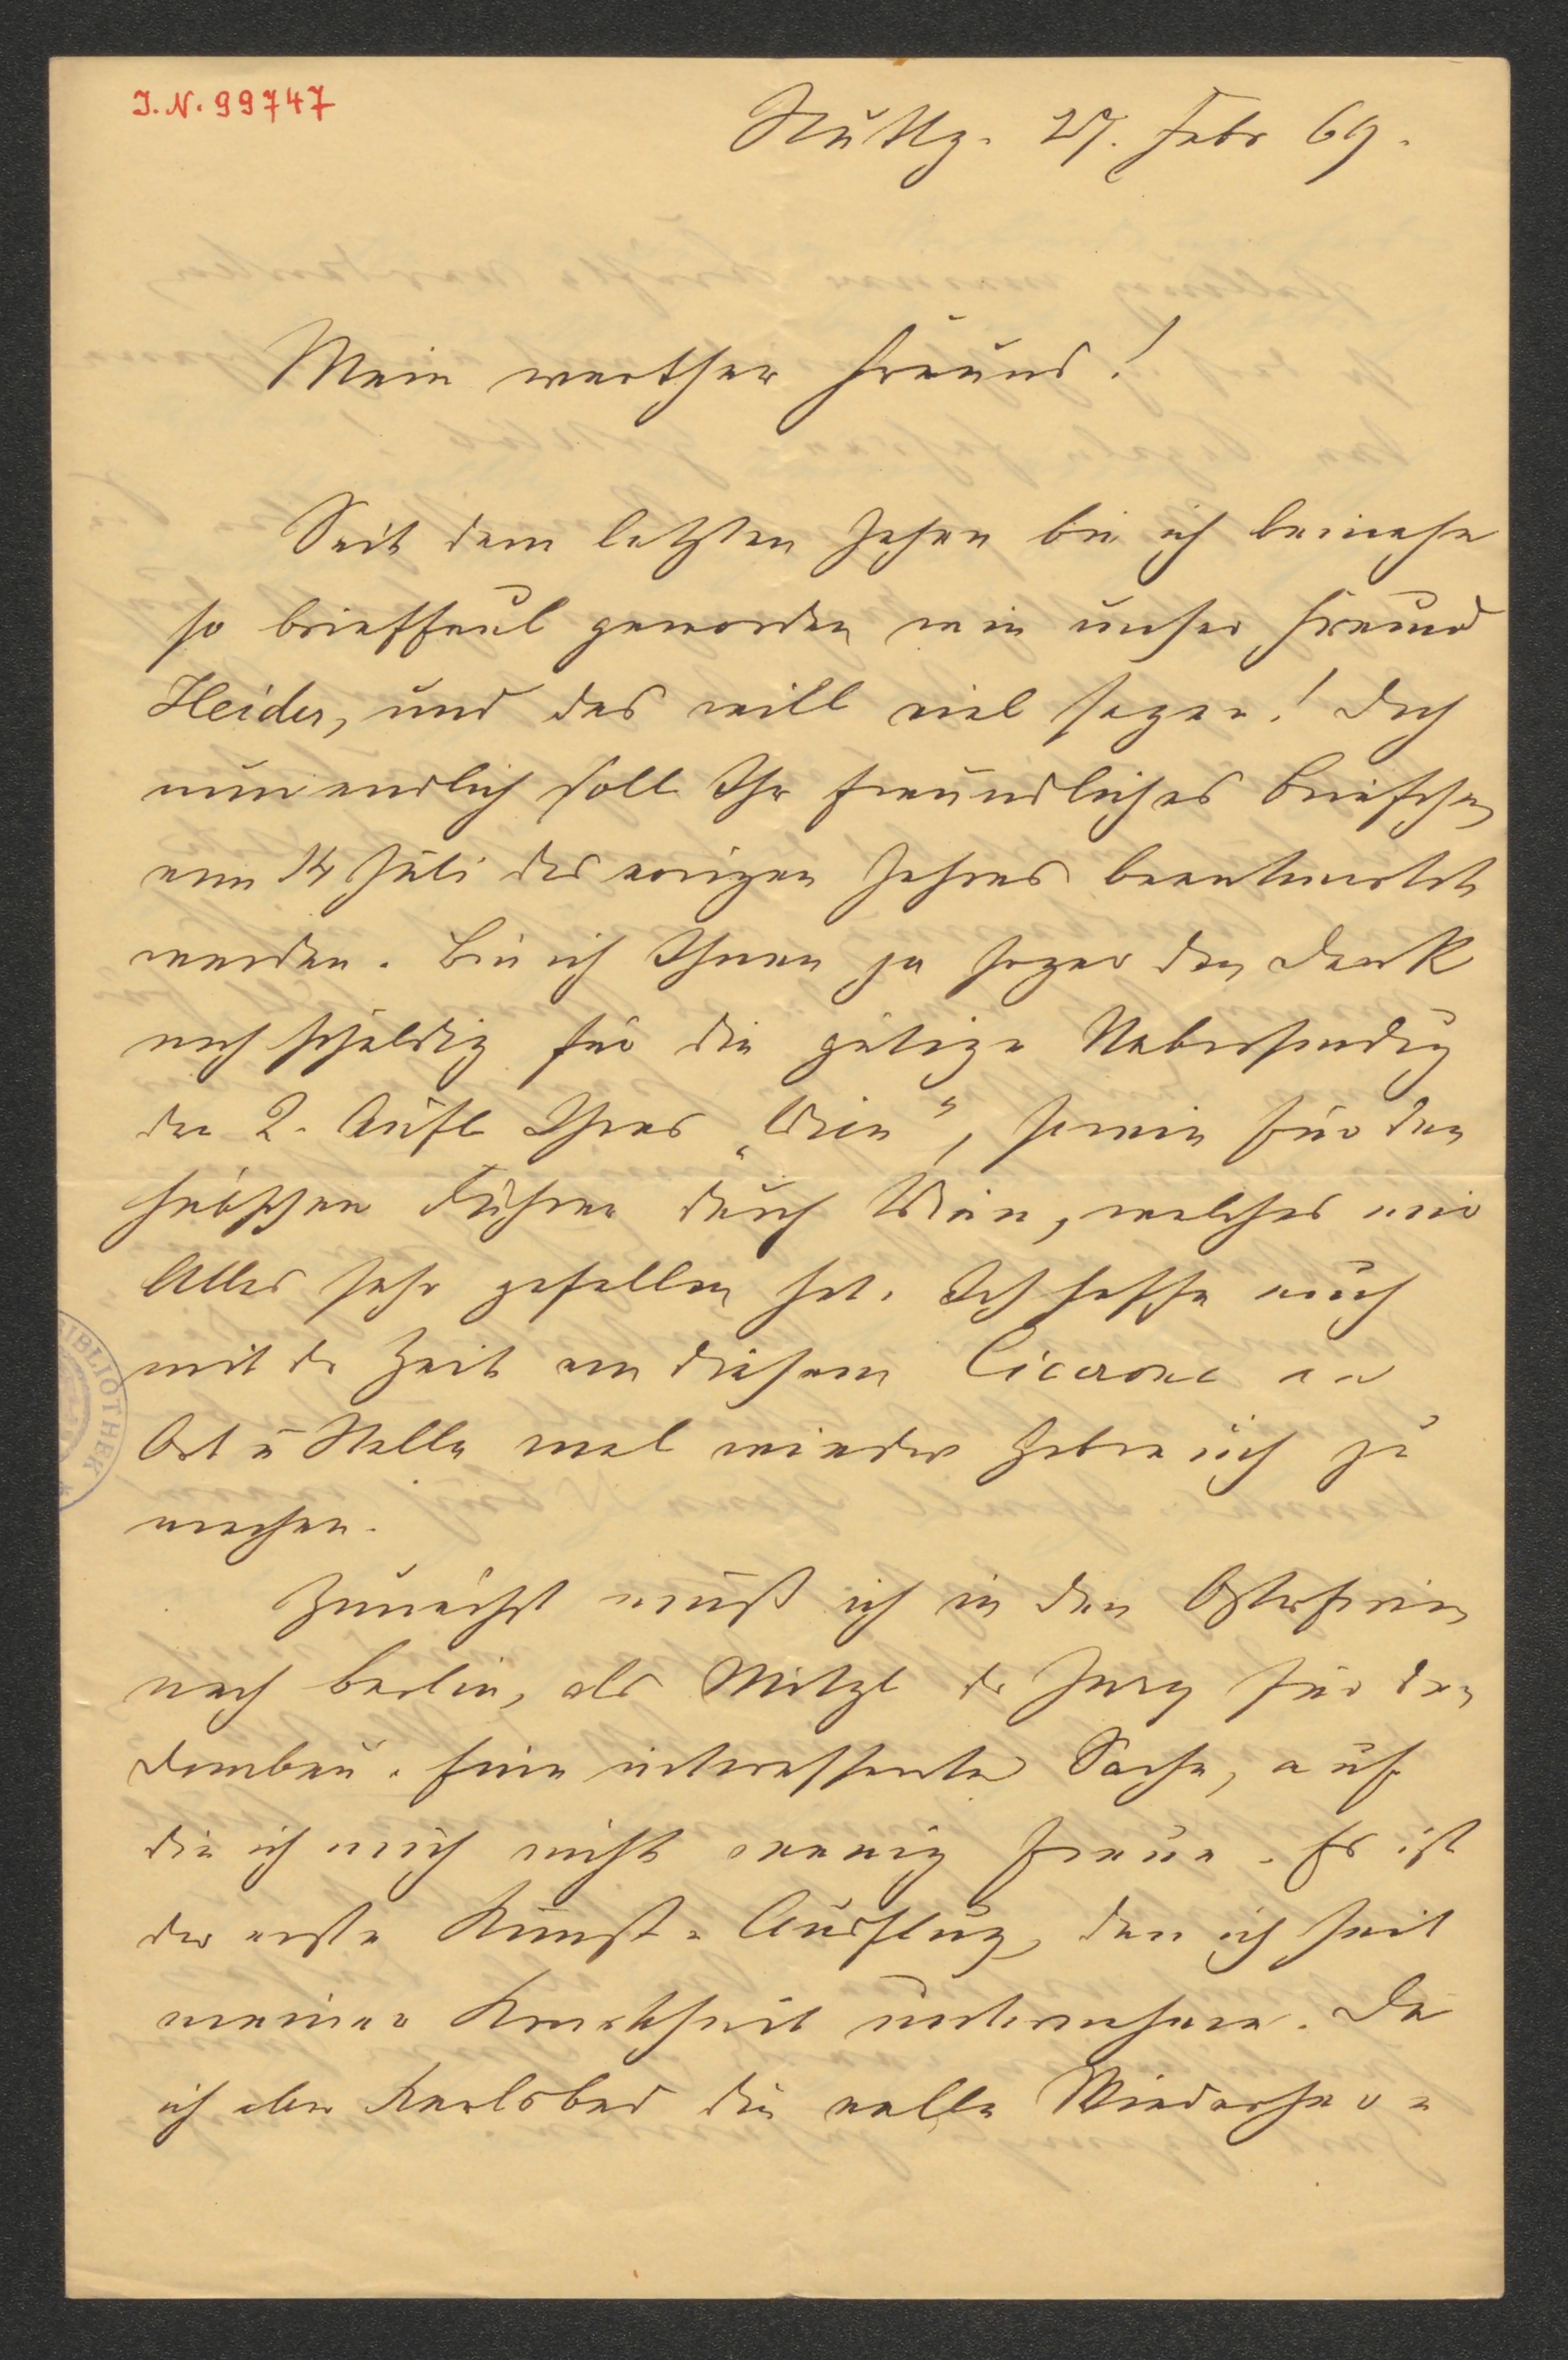 I.N. 99747
Stuttg. 27. Febr 69.
Mein werther Freund!
Seit dem letzten Jahre bin ich beinahe
so brieffaul geworden wie unser Freund
Heider, und das will viel sagen! Doch
nun endlich soll Ihr freundliches Briefchen
vom 14 Juli des vorigen Jahres beantwortet
werden. Bin ich Ihnen ja sogar den Dank
noch schuldig für die gütige Uebersendung
der 2. Aufl Ihres „Wien“, sowie für den
hübschen Führer durch Wien, welches mir
Alles sehr gefallen hat. Ich hoffe auch
mit der Zeit von diesem Cicerone an
Ort u Stelle mal wieder Gebrauch zu
machen.
Zunächst muß ich in den Osterferien
nach Berlin, als Mitgl der Jury für den
Dombau. Eine interessante Sache, auf
die ich mich nicht wenig freue. Es ist
der erste Kunst-Ausflug, den ich seit
meiner Krankheit unternehme. Da
ich aber Karlsbad die volle Wiederher-
BIBLIOTHEK